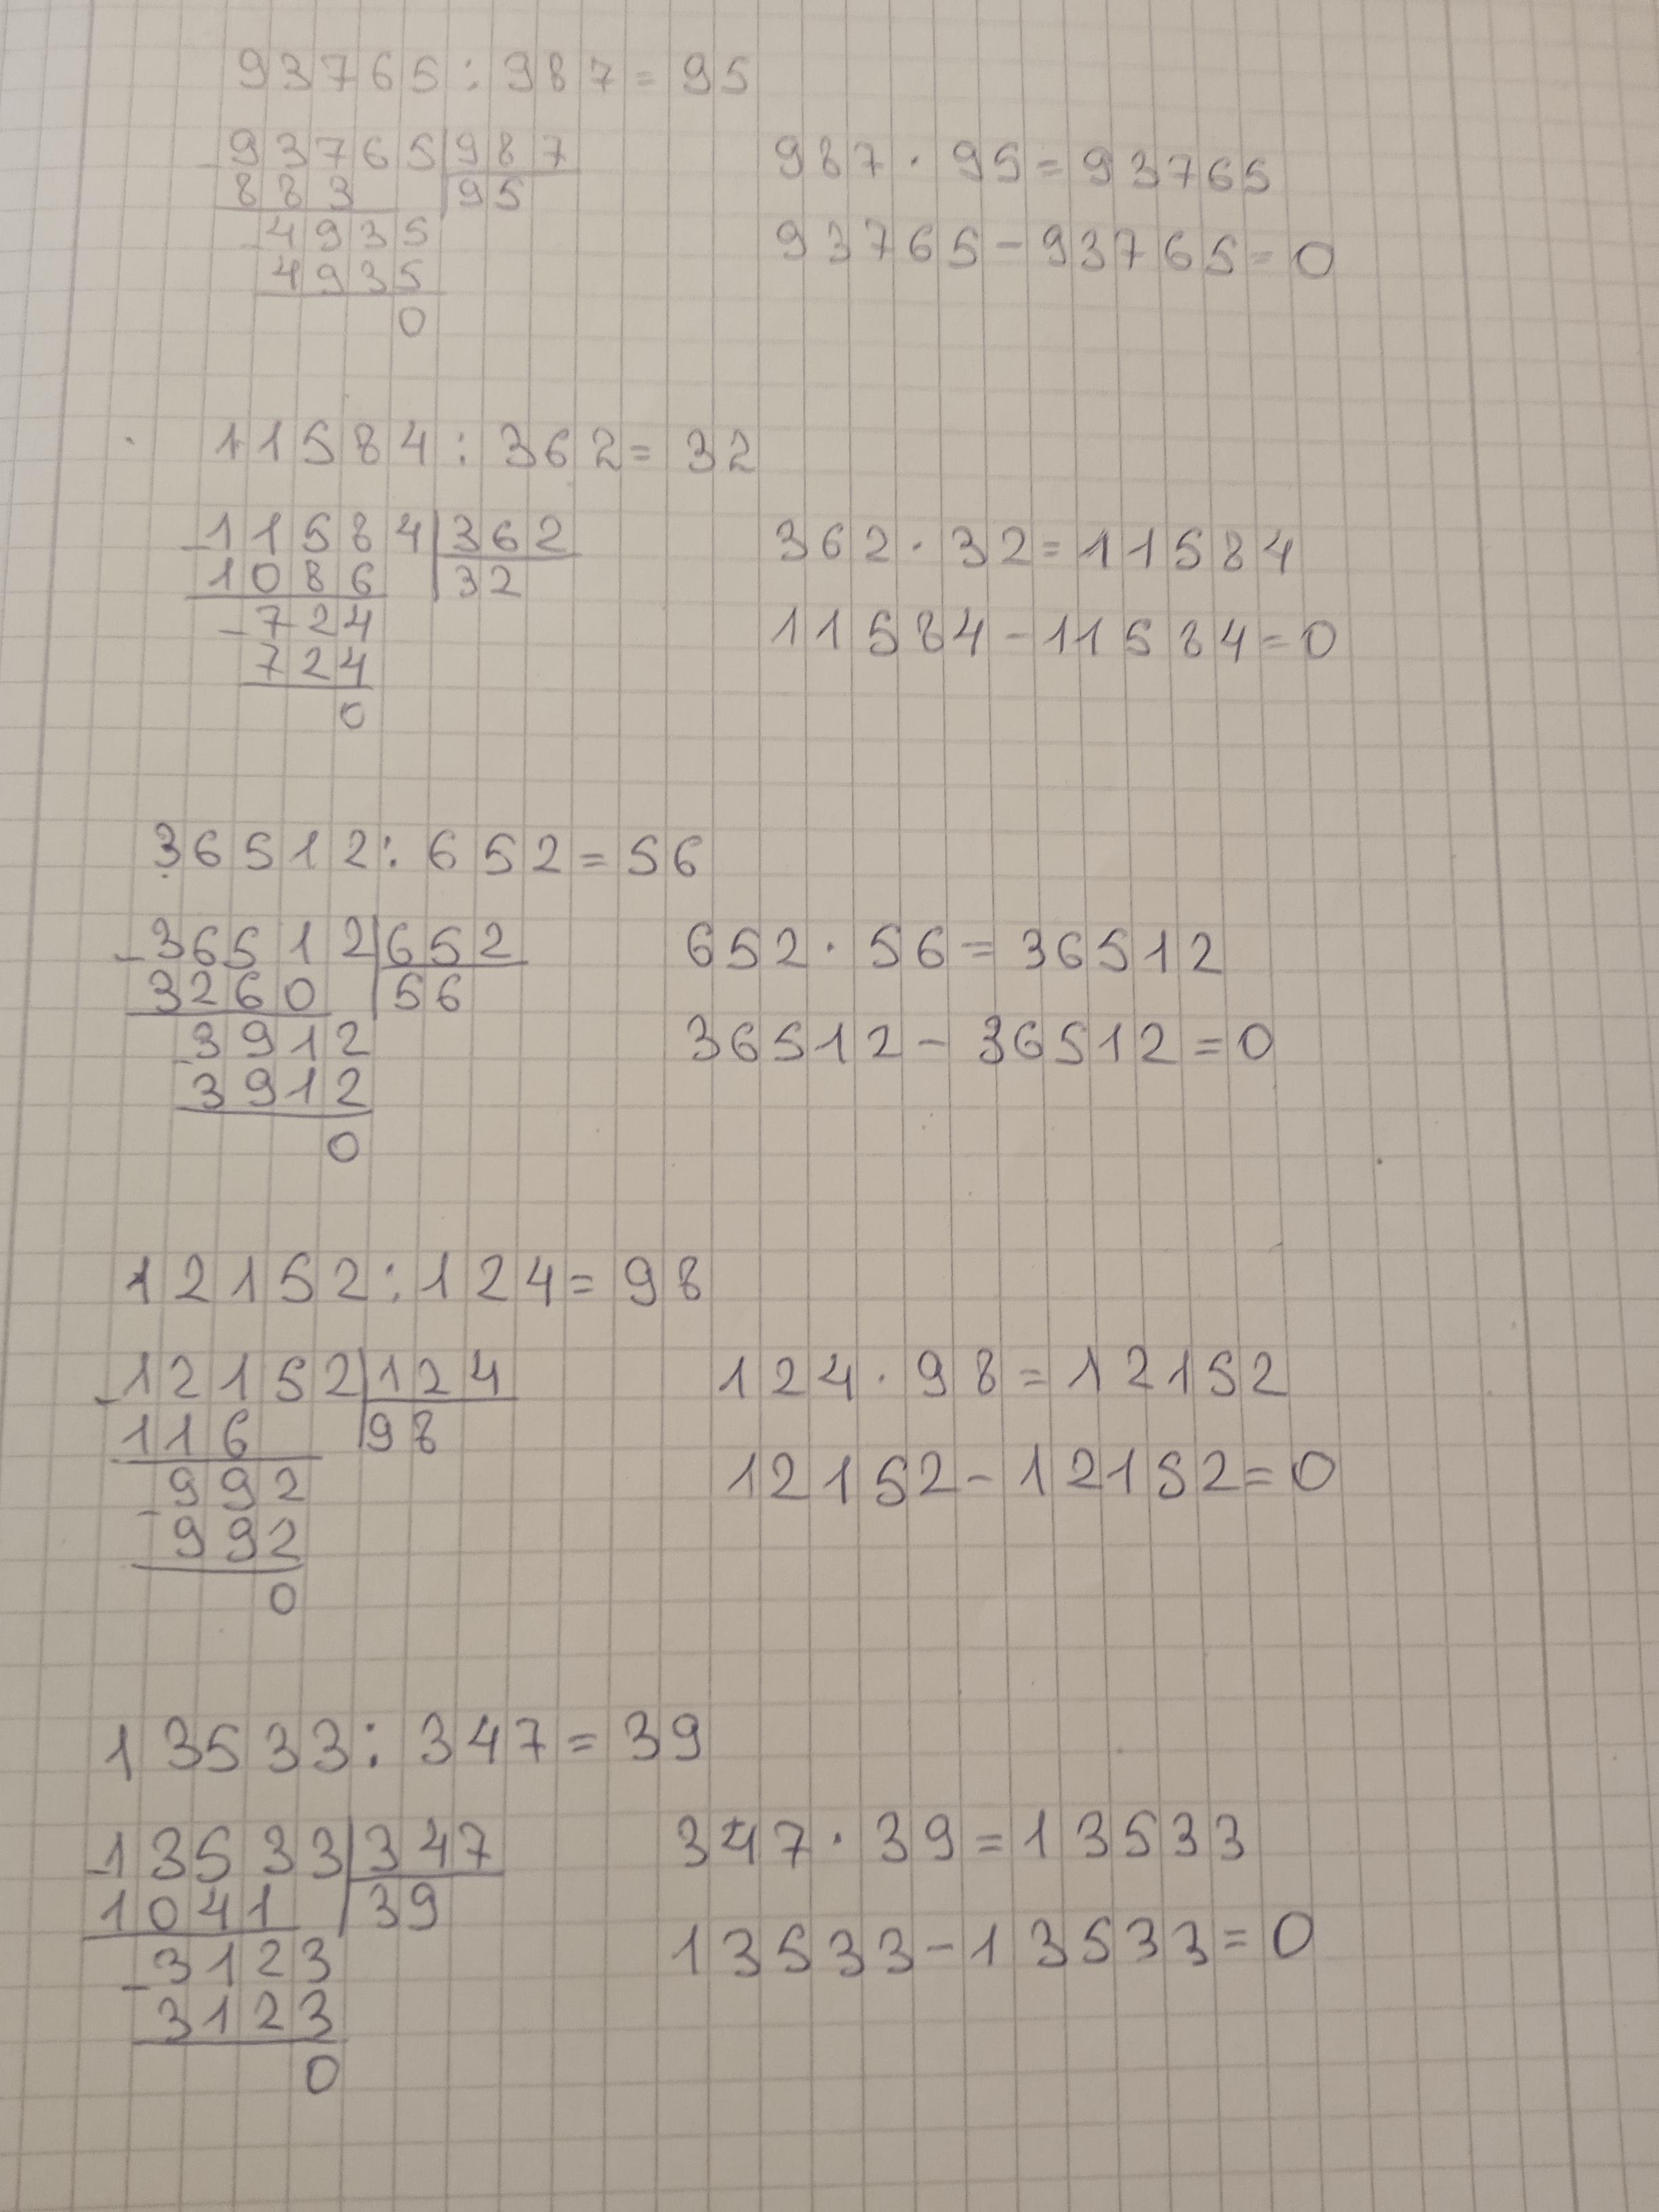 93765 : 987 = 95
93765 987
883 95
4935
4935
0
987 · 95 = 93765
93765 - 93765 = 0
11584 : 362 = 32
-11584 362
1086 32
-724
724
0
362 · 32 = 11584
11584 - 11584 = 0
36512 : 652 = 56
-36512 652
3260 56
-3912
3912
0
652 · 56 = 36512
36512 - 36512 = 0
12152 : 124 = 98
-12152 124
116 98
-992
992
0
124 · 98 = 12152
12152 - 12152 = 0
13533 : 347 = 39
-13533 347
1041 39
-3123
3123
0
347 · 39 = 13533
13533 - 13533 = 0